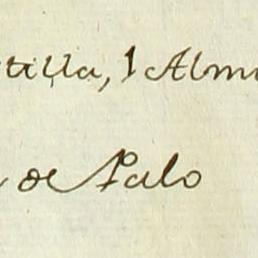 tilla, 1 Almi
de Palo